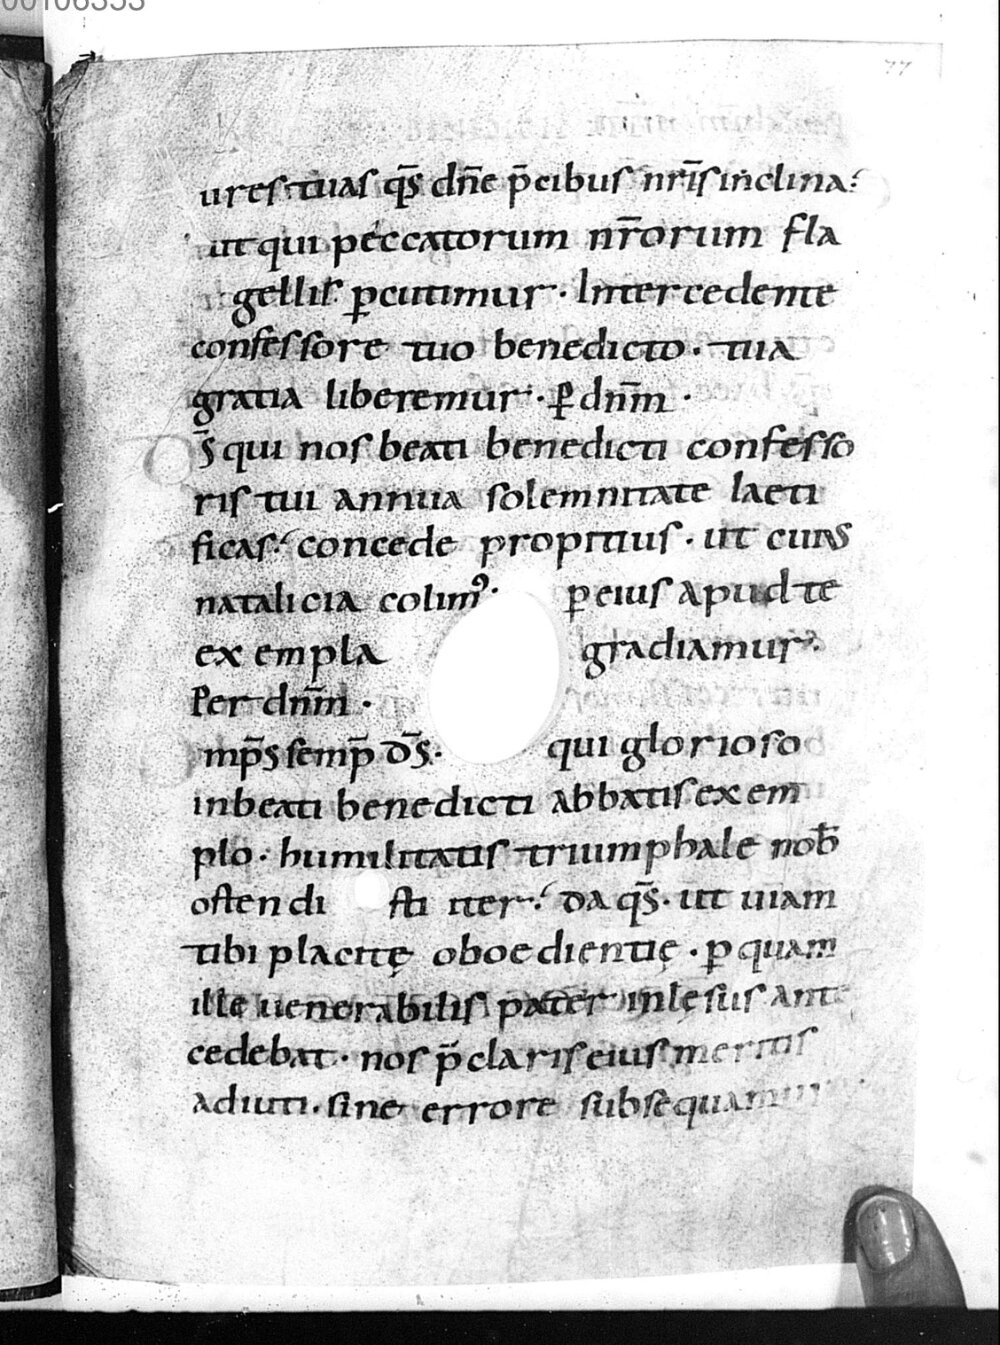 00106353
77
ures tuas q̄s dn̄e p̄cibus nr̄is inclina:
ut qui peccatorum nr̄orum fla
gellis ꝑcutimur · Intercedente
confessore tuo benedicto · tua
gratia liberemur · ꝑ dn̄m ·
s̄ qui nos beati benedicti confesso
ris tui annua solemnitate laeti
ficas : concede propitius · ut cuius
natalicia colim᾽ · ꝑ eius apud te
exempla gradiamur ·
Per dn̄m ·
mp̄s semp̄ ds̄ · qui glorioso
in beati benedicti abbatis exem
plo · humilitatis triumphale nob̄
ostendisti iter : da q̄s · ut uiam
tibi placitę oboedientię · ꝑ quam
ille uenerabilis pater inlęsus ante
cedebat · nos p̄claris eius meritis
adiuti · sine errore subsequamur